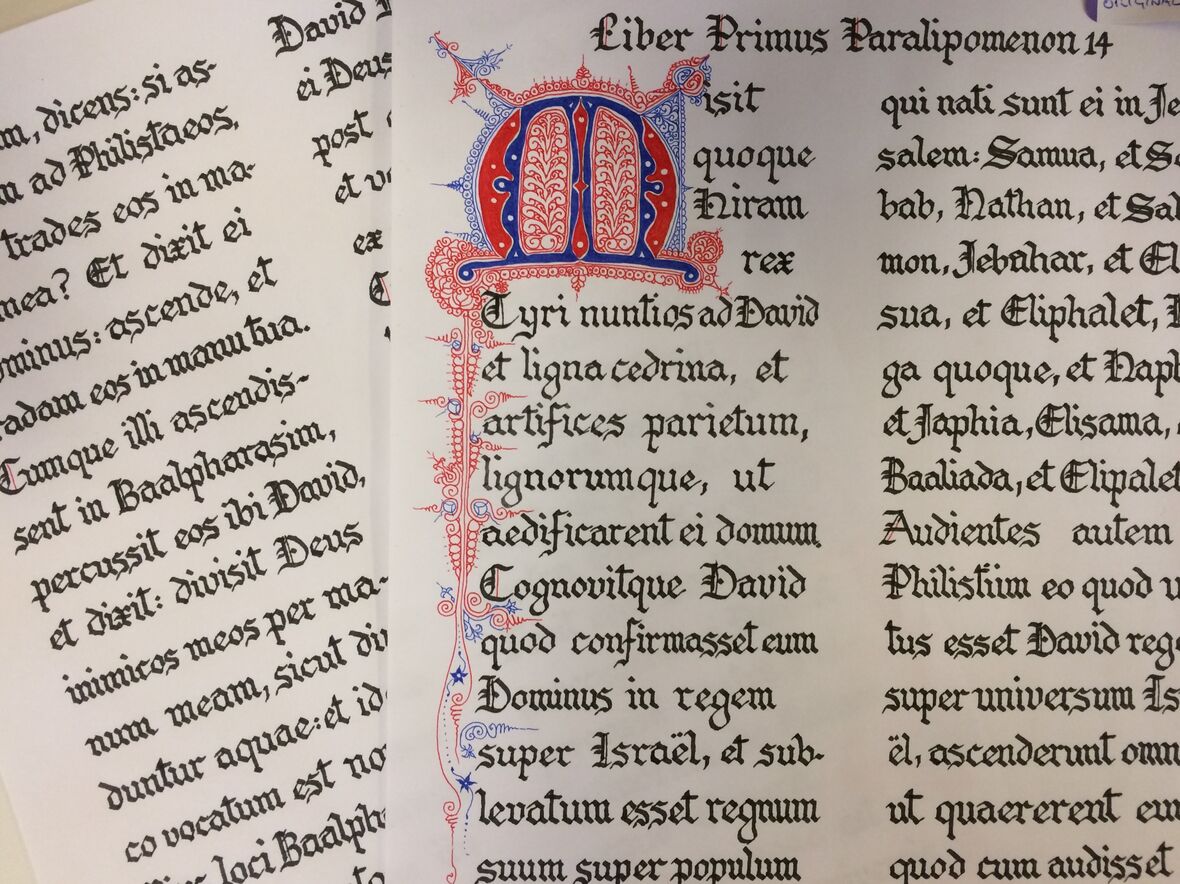 dicens: si as-
ad Philistaeos,
trades eos in ma-
mea? Et dixit ei
ominus: ascende, et
radam eos in manu tua.
Cumque illi ascendis-
sent in Baalpharasim,
percussit eos ibi David,
et dixit: divisit Deus
inimicos meos per ma-
num meam, sicut di
duntur aquae: et id
co vocatum est no
loci Baalph
David
ei Deus
post
et
ex
ORIGINAL
Liber Primus Paralipomenon 14
Misit
quoque
Hiram
rex
Tyri nuntios ad David
et ligna cedrina, et
artifices parietum,
lignorumque, ut
aedificarent ei domum.
Cognovitque David
quod confirmasset eum
Dominus in regem
super Israël, et sub-
levatum esset regnum
suum super populum
qui nati sunt ei in Je
salem: Samua, et So
bab, Nathan, et Sal
mon, Jebahar, et El
sua, et Eliphalet,
ga quoque, et Naph
et Japhia, Elisama,
Baaliada, et Elipalet
Audientes autem
Philistiim eo quod u
tus esset David reg
super universum Is
ël, ascenderunt omn
ut quaererent eu
quod cum audisset